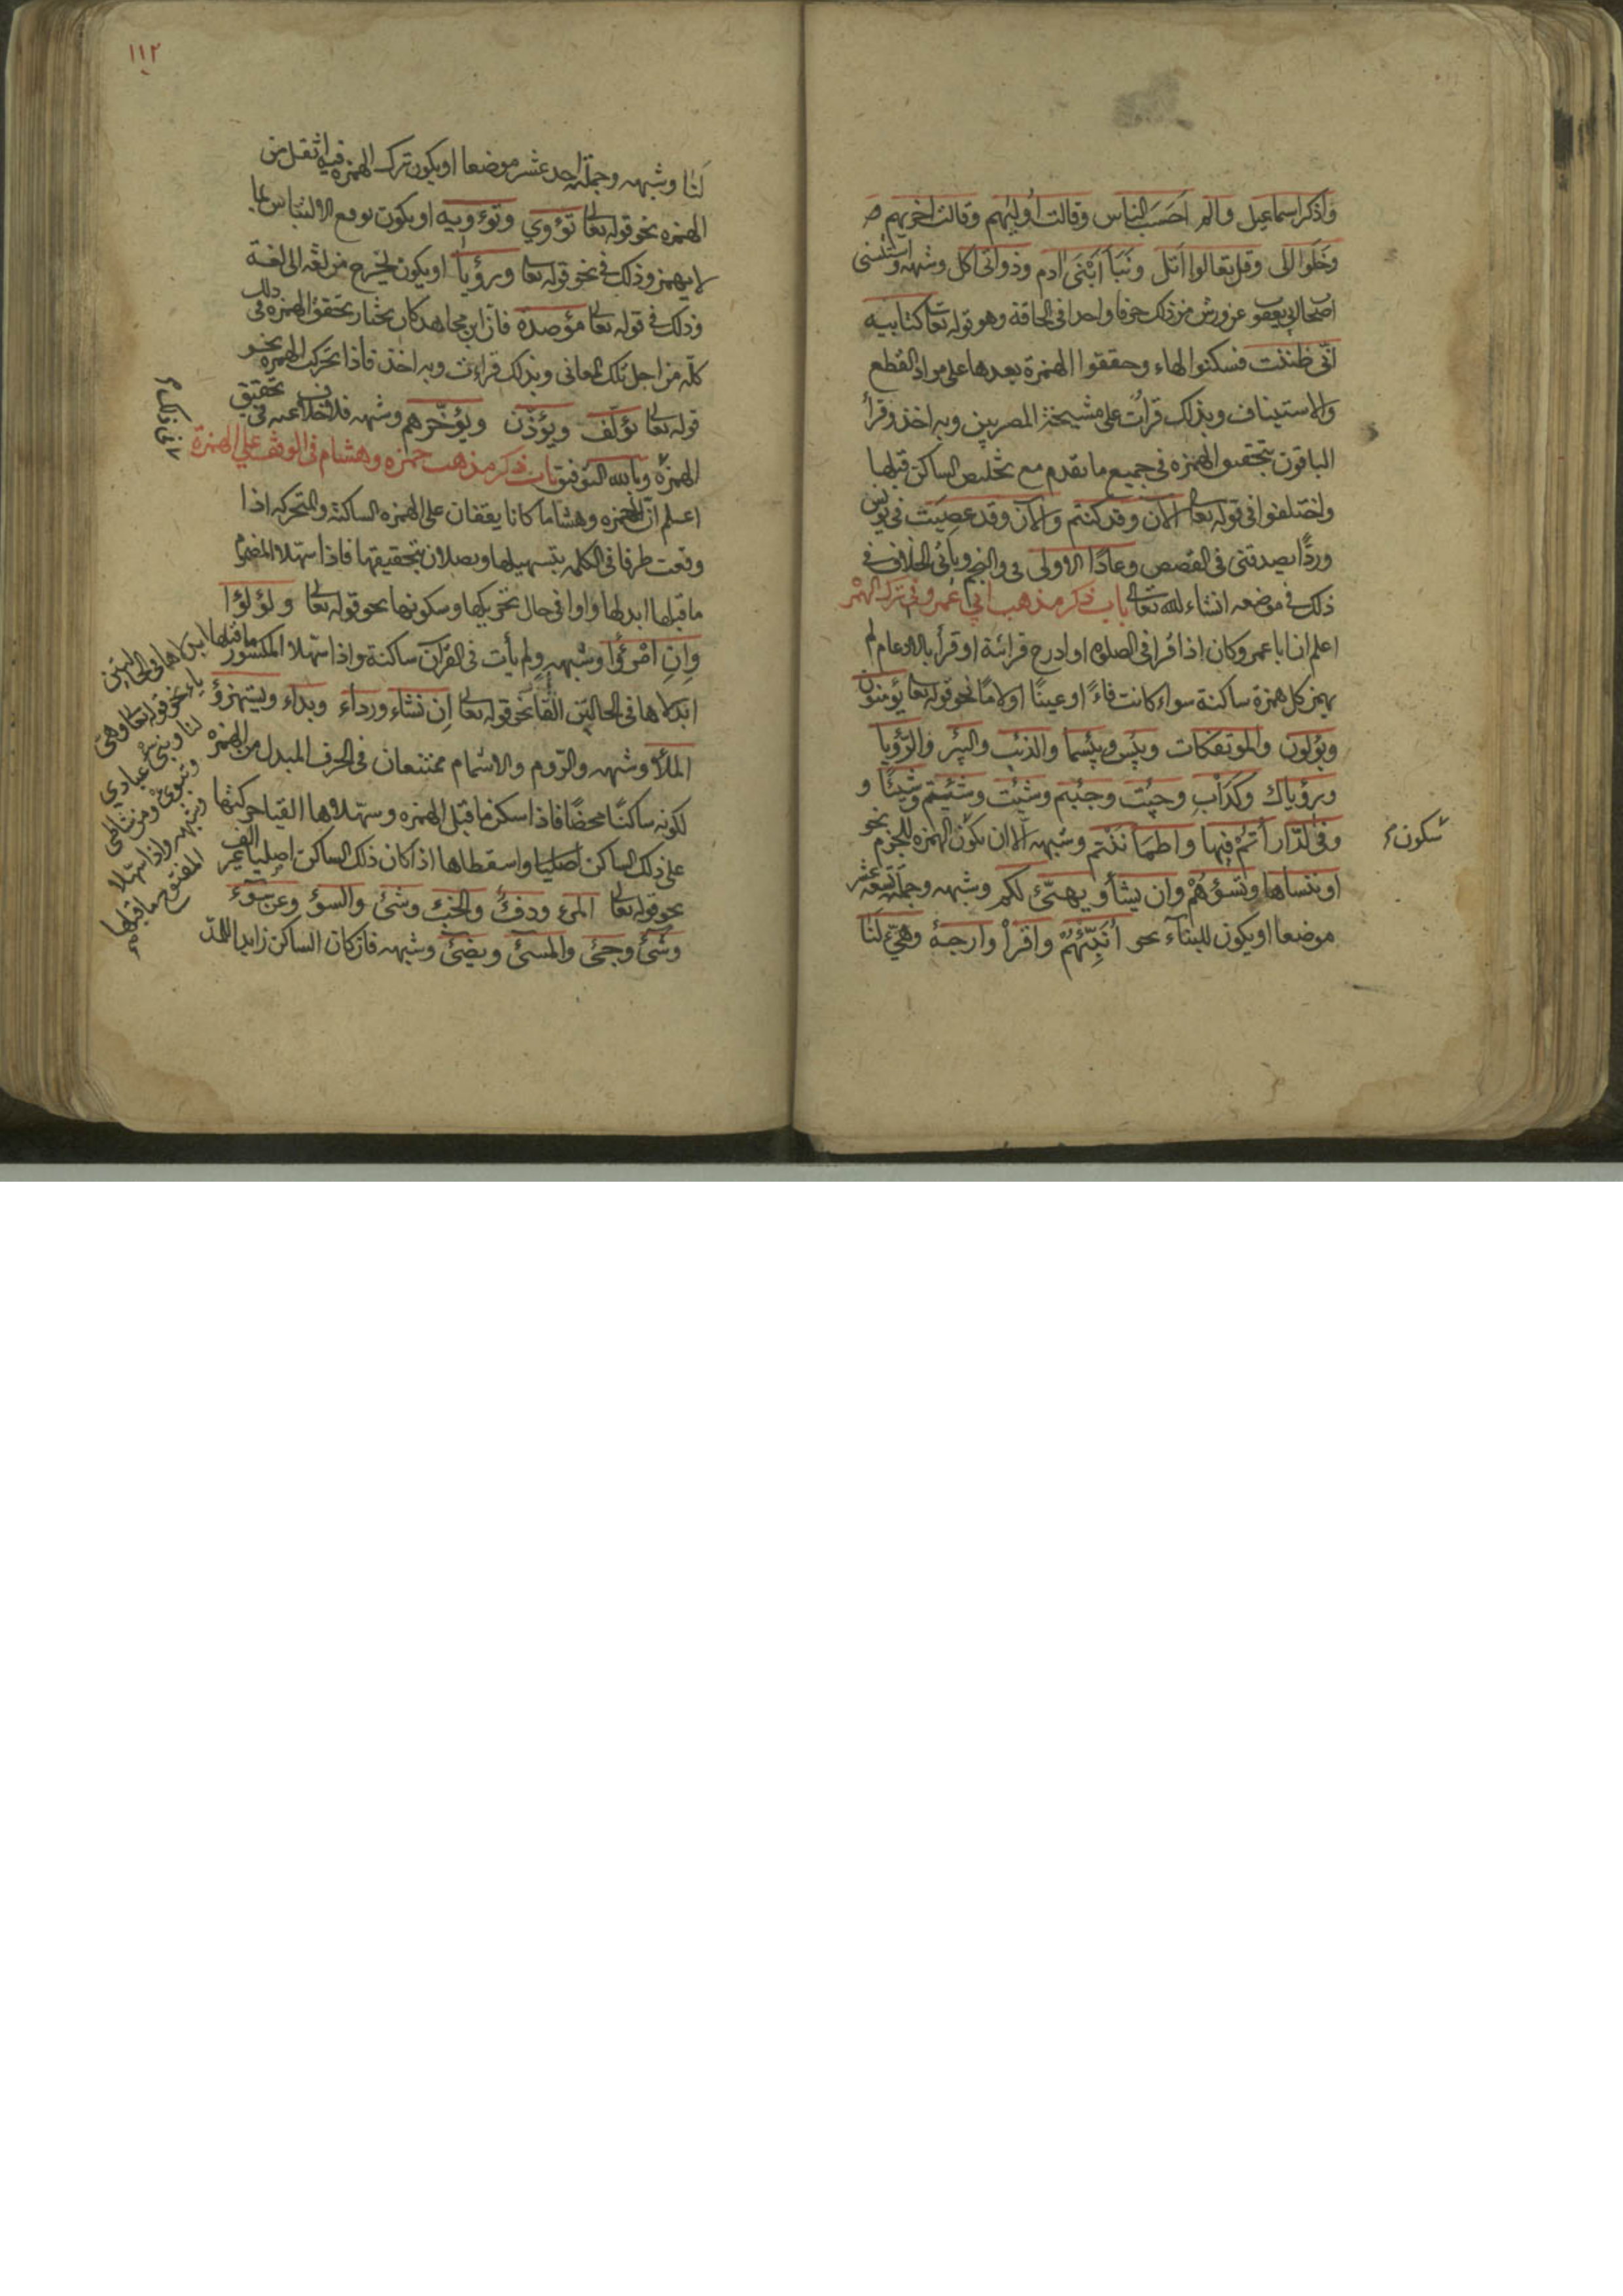 واذكر اسماعيل والم احسب الناس وقالت اوليهم وقالت اخريهم
وخلوا الى وقل تعالوا اتل ونبأ ابنى ادم وذواتى اكل وشبهه واستثنى
اصحاب ابى يعقوب عن ورش من ذلك حرفا واحدا فى الحاقة وهو قوله تعالى كتابيه
انى ظننت فسكنوا الهاء وحققوا الهمزة بعدها على مراد القطع
والاستيناف وبذلك قرأت على مشيخة المصريين وبه اخذ وقرأ
الباقون بتحقيق الهمزه فى جميع ما تقدم مع تخليص الساكن قبلها
واختلفوا فى قوله تعالى الآن وقد كنتم والآن وقد عصيت فى يونس
وردًا يصدقنى فى القصص وعادًا الاولى فى والنجم ويأتى الخلاف فى
ذلك فى موضعه انشاء الله تعالى باب ذكر مذهب ابى عمرو فى ترك الهمز
اعلم ان ابا عمرو كان اذا قرا فى الصلوه او ادرج قرائته او قرأ بالادغام لم
يهمز كل همزة ساكنة سواء كانت فاءً او عينًا او لامًا نحو قوله تعالى يؤمنون
ويؤلون والموتفكات وبئس وبئسما والذئب والبئر والرؤيا
ورؤياك وكدأب وجئت وجئتم وشئت وشئتم وشيئًا و
وفى الدارأتم فيها واطمأننتم وشبهه الا ان تكون الهمزه للجزم نحو
سكون
او ننساها وتسؤهم وان يشأ ويهيئ لكم وشبهه وجملته تسعة عشر
موضعا او يكون للبناء نحو انبئهم واقرأ وارجه وهيئ لنا
١١٢
لنا وشبهه وجملته احد عشر موضعا او يكون ترك الهمزه فيه اثقل من
الهمزه نحو قوله تعالى تؤوي وتؤويه او يكون يوقع الالتباس بما
لا يهمز وذلك فى نحو قوله تعالى ورؤيا او يكون يخرج من لغة الى لغة
وذلك فى قوله تعالى مؤصدة فان ابن مجاهد كان يختار تحقق الهمزه فى ذلك
كله من اجل تلك المعانى وبذلك قراءت وبه اخذ فاذا تحركت الهمزه نحو
قوله تعالى يؤلف ويؤذن ويؤخرهم وشبهه فلا خلاف عنه فى تحقيق
الهمزة وبالله التوفيق باب ذكر مذهب حمزه وهشام فى الوقف على الهمزة
اعلم ان حمزه وهشاما كانا يقفان على الهمزه الساكنة والمتحركه اذا
وقعت طرفا فى الكلمه بتسهيلها ويصلان بتحقيقها فاذا سهلا المضموم
ما قبلها ابدلها واوا فى حال تحريكها وسكونها نحو قوله تعالى ولؤلؤا
وان امرؤا وشبهه ولم يأت فى القرآن ساكنة واذا سهلا المكسور ما قبلها ابدلاها فى الحالين
ياء نحو قوله تعالى وهيئ
لنا ونبئ عبادي
وتبوئ ومن شاطئ
وشبهه واذا سهلا
المفتوح ما قبلها
ابدلاها فى الحالين الفا نحو قوله تعالى ان نشاء ورداء وبداء ويستهزؤ
الملأ وشبهه والروم والاشمام ممتنعان فى الحرف المبدل من الهمزه
لكونه ساكنًا محضًا فاذا سكن ما قبل الهمزه وسهلاها القيا حركتها
على ذلك الساكن واسقطاها اذا كان ذلك الساكن اصليا غير الف
نحو قوله تعالى المرء ودفء والخبء وشئ والسؤ وعن سوء
وشئ وجئ والمسئ ويضئ وشبهه فان كان الساكن زايدا للمد